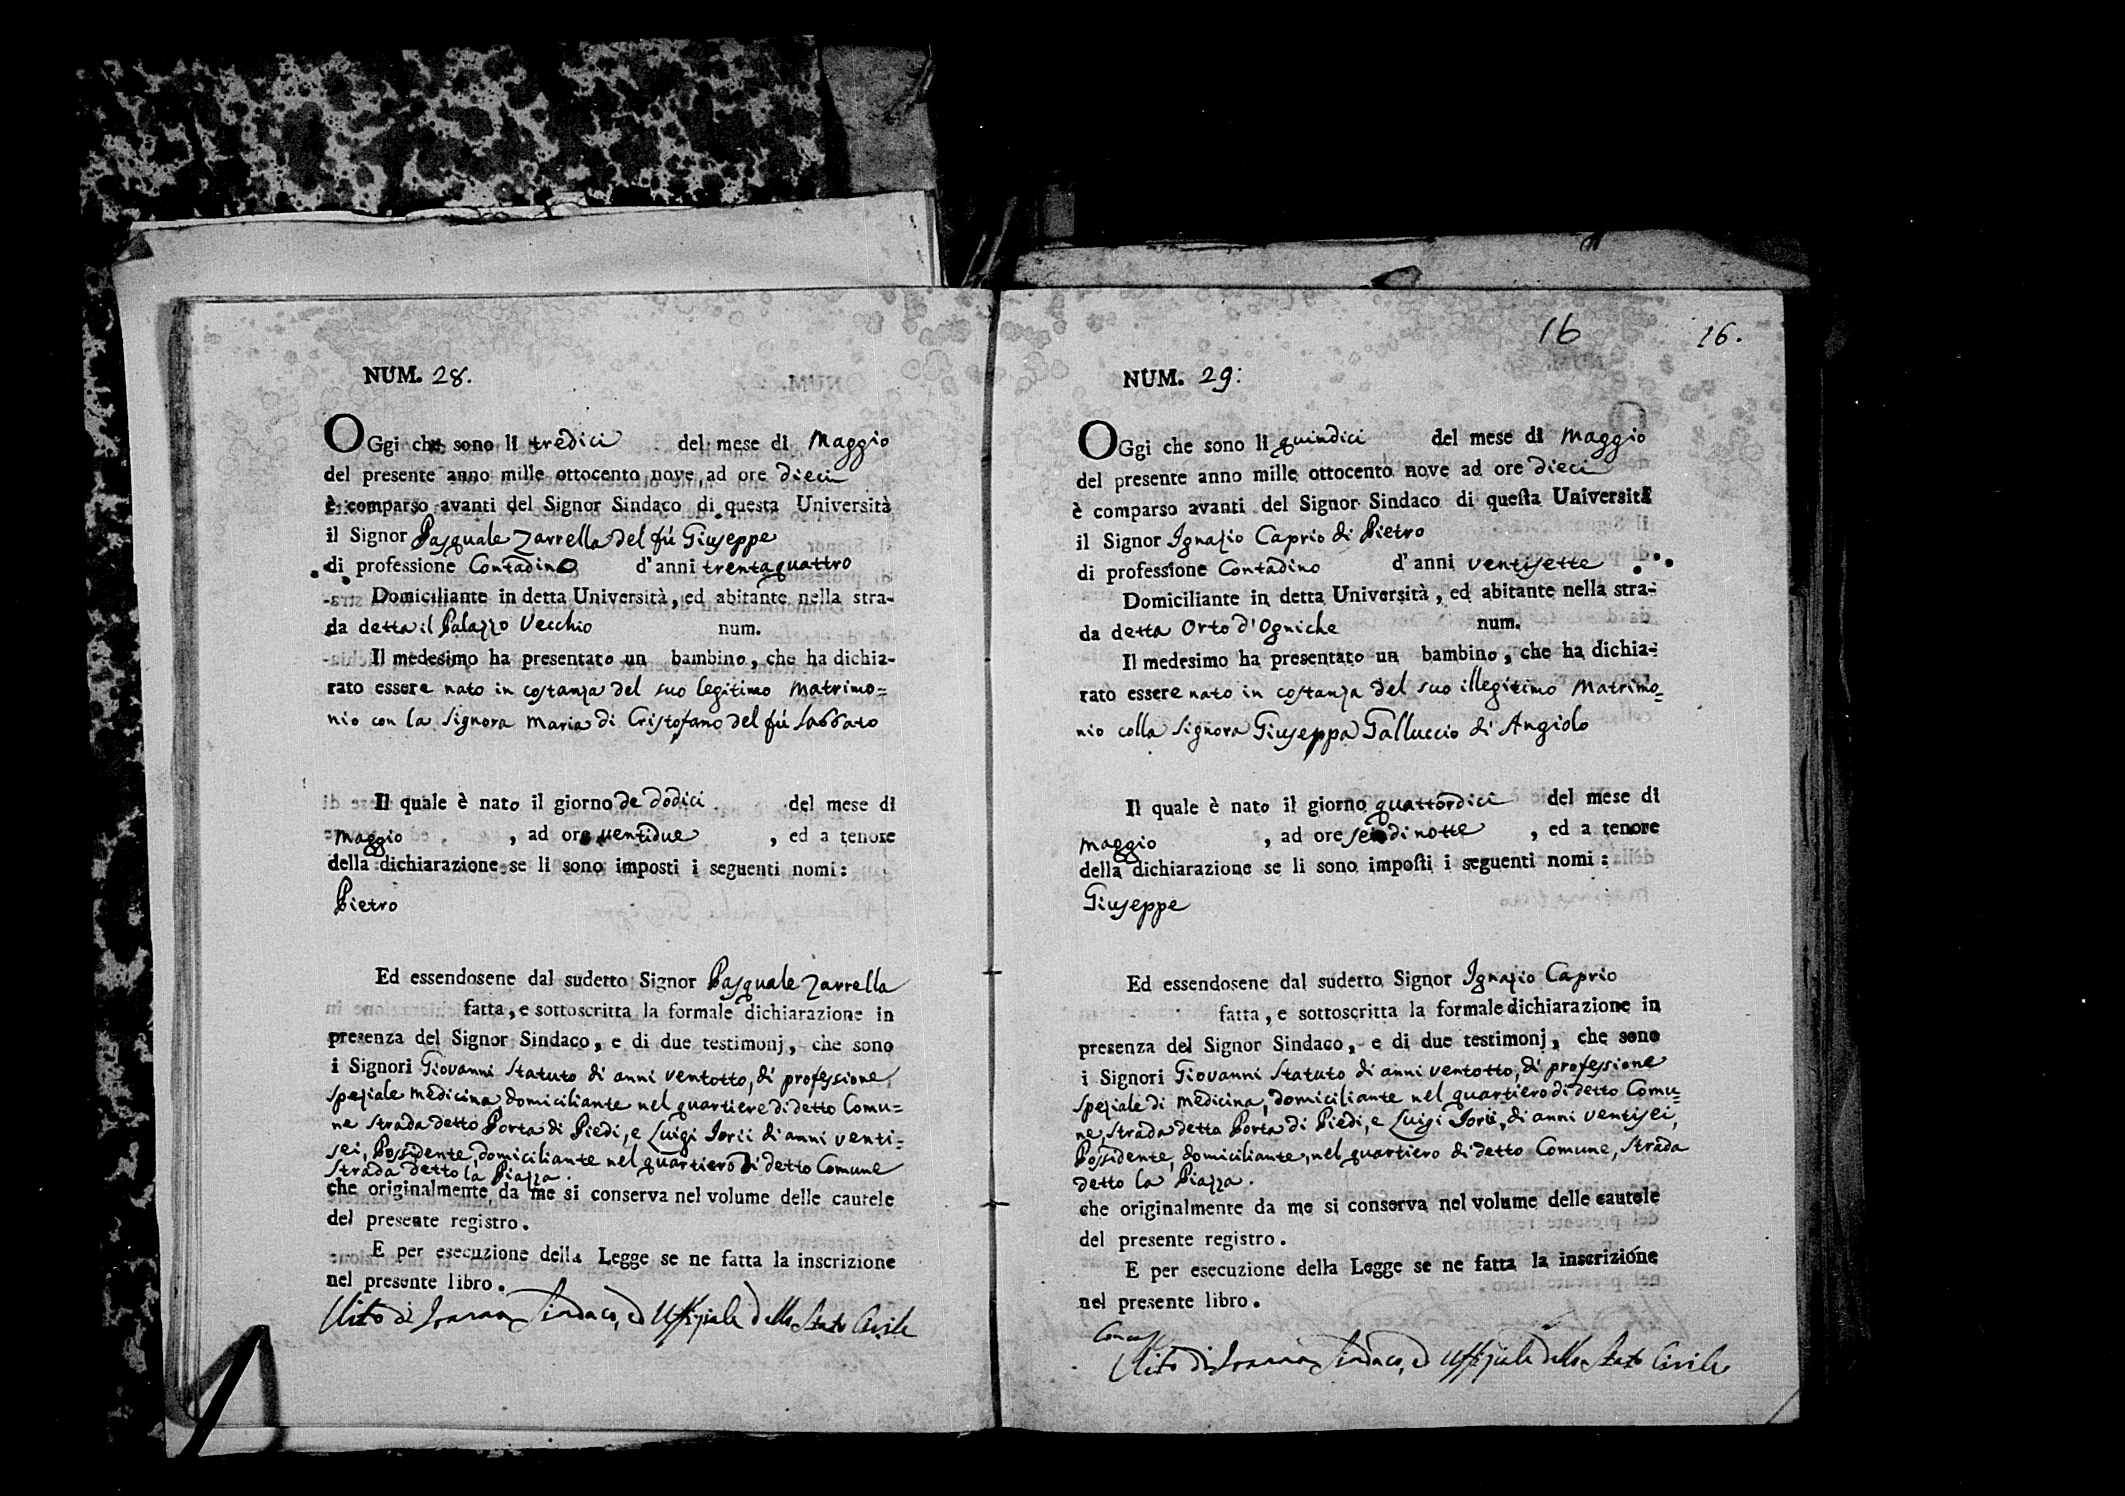 NUM. 28.
OGgi che sono li tredici del mese di Maggio
del presente anno mille ottocento nove ad ore dieci
è comparso avanti del Signor Sindaco di questa Università
il Signor Pasquale Zarrella del fù Giuseppe
di professione Contadino d'anni trentaquattro
Domiciliante in detta Università, ed abitante nella stra-
da detta il Palazzo Vecchio num.
Il medesimo ha presentato un bambino, che ha dichia-
rato essere nato in costanza del suo legitimo Matrimo=
nio con la Signora Maria di Cristofano del fù Sabbato
Il quale è nato il giorno de dodici del mese di
Maggio , ad ore ventidue , ed a tenore
della dichiarazione se li sono imposti i seguenti nomi:
Pietro
Ed essendosene dal sudetto Signor Pasquale Zarrella
fatta, e sottoscritta la formale dichiarazione in
presenza del Signor Sindaco, e di due testimonj, che sono
i Signori Giovanni Statuto di anni ventotto, di professione
speziale medicina domiciliante nel quartiere di detto Comu=
ne strada detto Porta di Piedi, e Luigi Iorii di anni venti=
sei, Possidente domiciliante nel quartiero di detto Comune
strada detto la Piazza.
che originalmente da me si conserva nel volume delle cautele
del presente registro.
E per esecuzione della Legge se ne fatta la inscrizione
nel presente libro.
Vito di Sindaco, ed Uffiziale dello Stato Civile
16 16.
NUM. 29:
OGgi che sono li quindici del mese di Maggio
del presente anno mille ottocento nove ad ore dieci
è comparso avanti del Signor Sindaco di questa Università
il Signor Ignazio Caprio di Pietro
di professione Contadino d'anni ventisette
Domiciliante in detta Università, ed abitante nella stra-
da detta Orto d'Ogniche num.
Il medesimo ha presentato un bambino, che ha dichia-
rato essere nato in costanza del suo illegitimo Matrimo=
nio colla Signora Giuseppa Galluccio di Angiolo
Il quale è nato il giorno quattordici del mese di
Maggio , ad ore sei di notte , ed a tenore
della dichiarazione se li sono imposti i seguenti nomi:
Giuseppe
Ed essendosene dal sudetto Signor Ignazio Caprio
fatta, e sottoscritta la formale dichiarazione in
presenza del Signor Sindaco, e di due testimonj, che sono
i Signori Giovanni Statuto di anni ventotto, di professione
speziale di medicina, domiciliante nel quartiero di detto Comu=
ne, strada detta Porta di Piedi, e Luigi Iorii, di anni ventisei,
Possidente, domiciliante, nel quartiero di detto Comune, strada
detto la Piazza.
che originalmente da me si conserva nel volume delle cautele
del presente registro.
E per esecuzione della Legge se ne fatta la inscrizione
nel presente libro.
Vito di Sindaco, ed Uffiziale dello Stato Civile